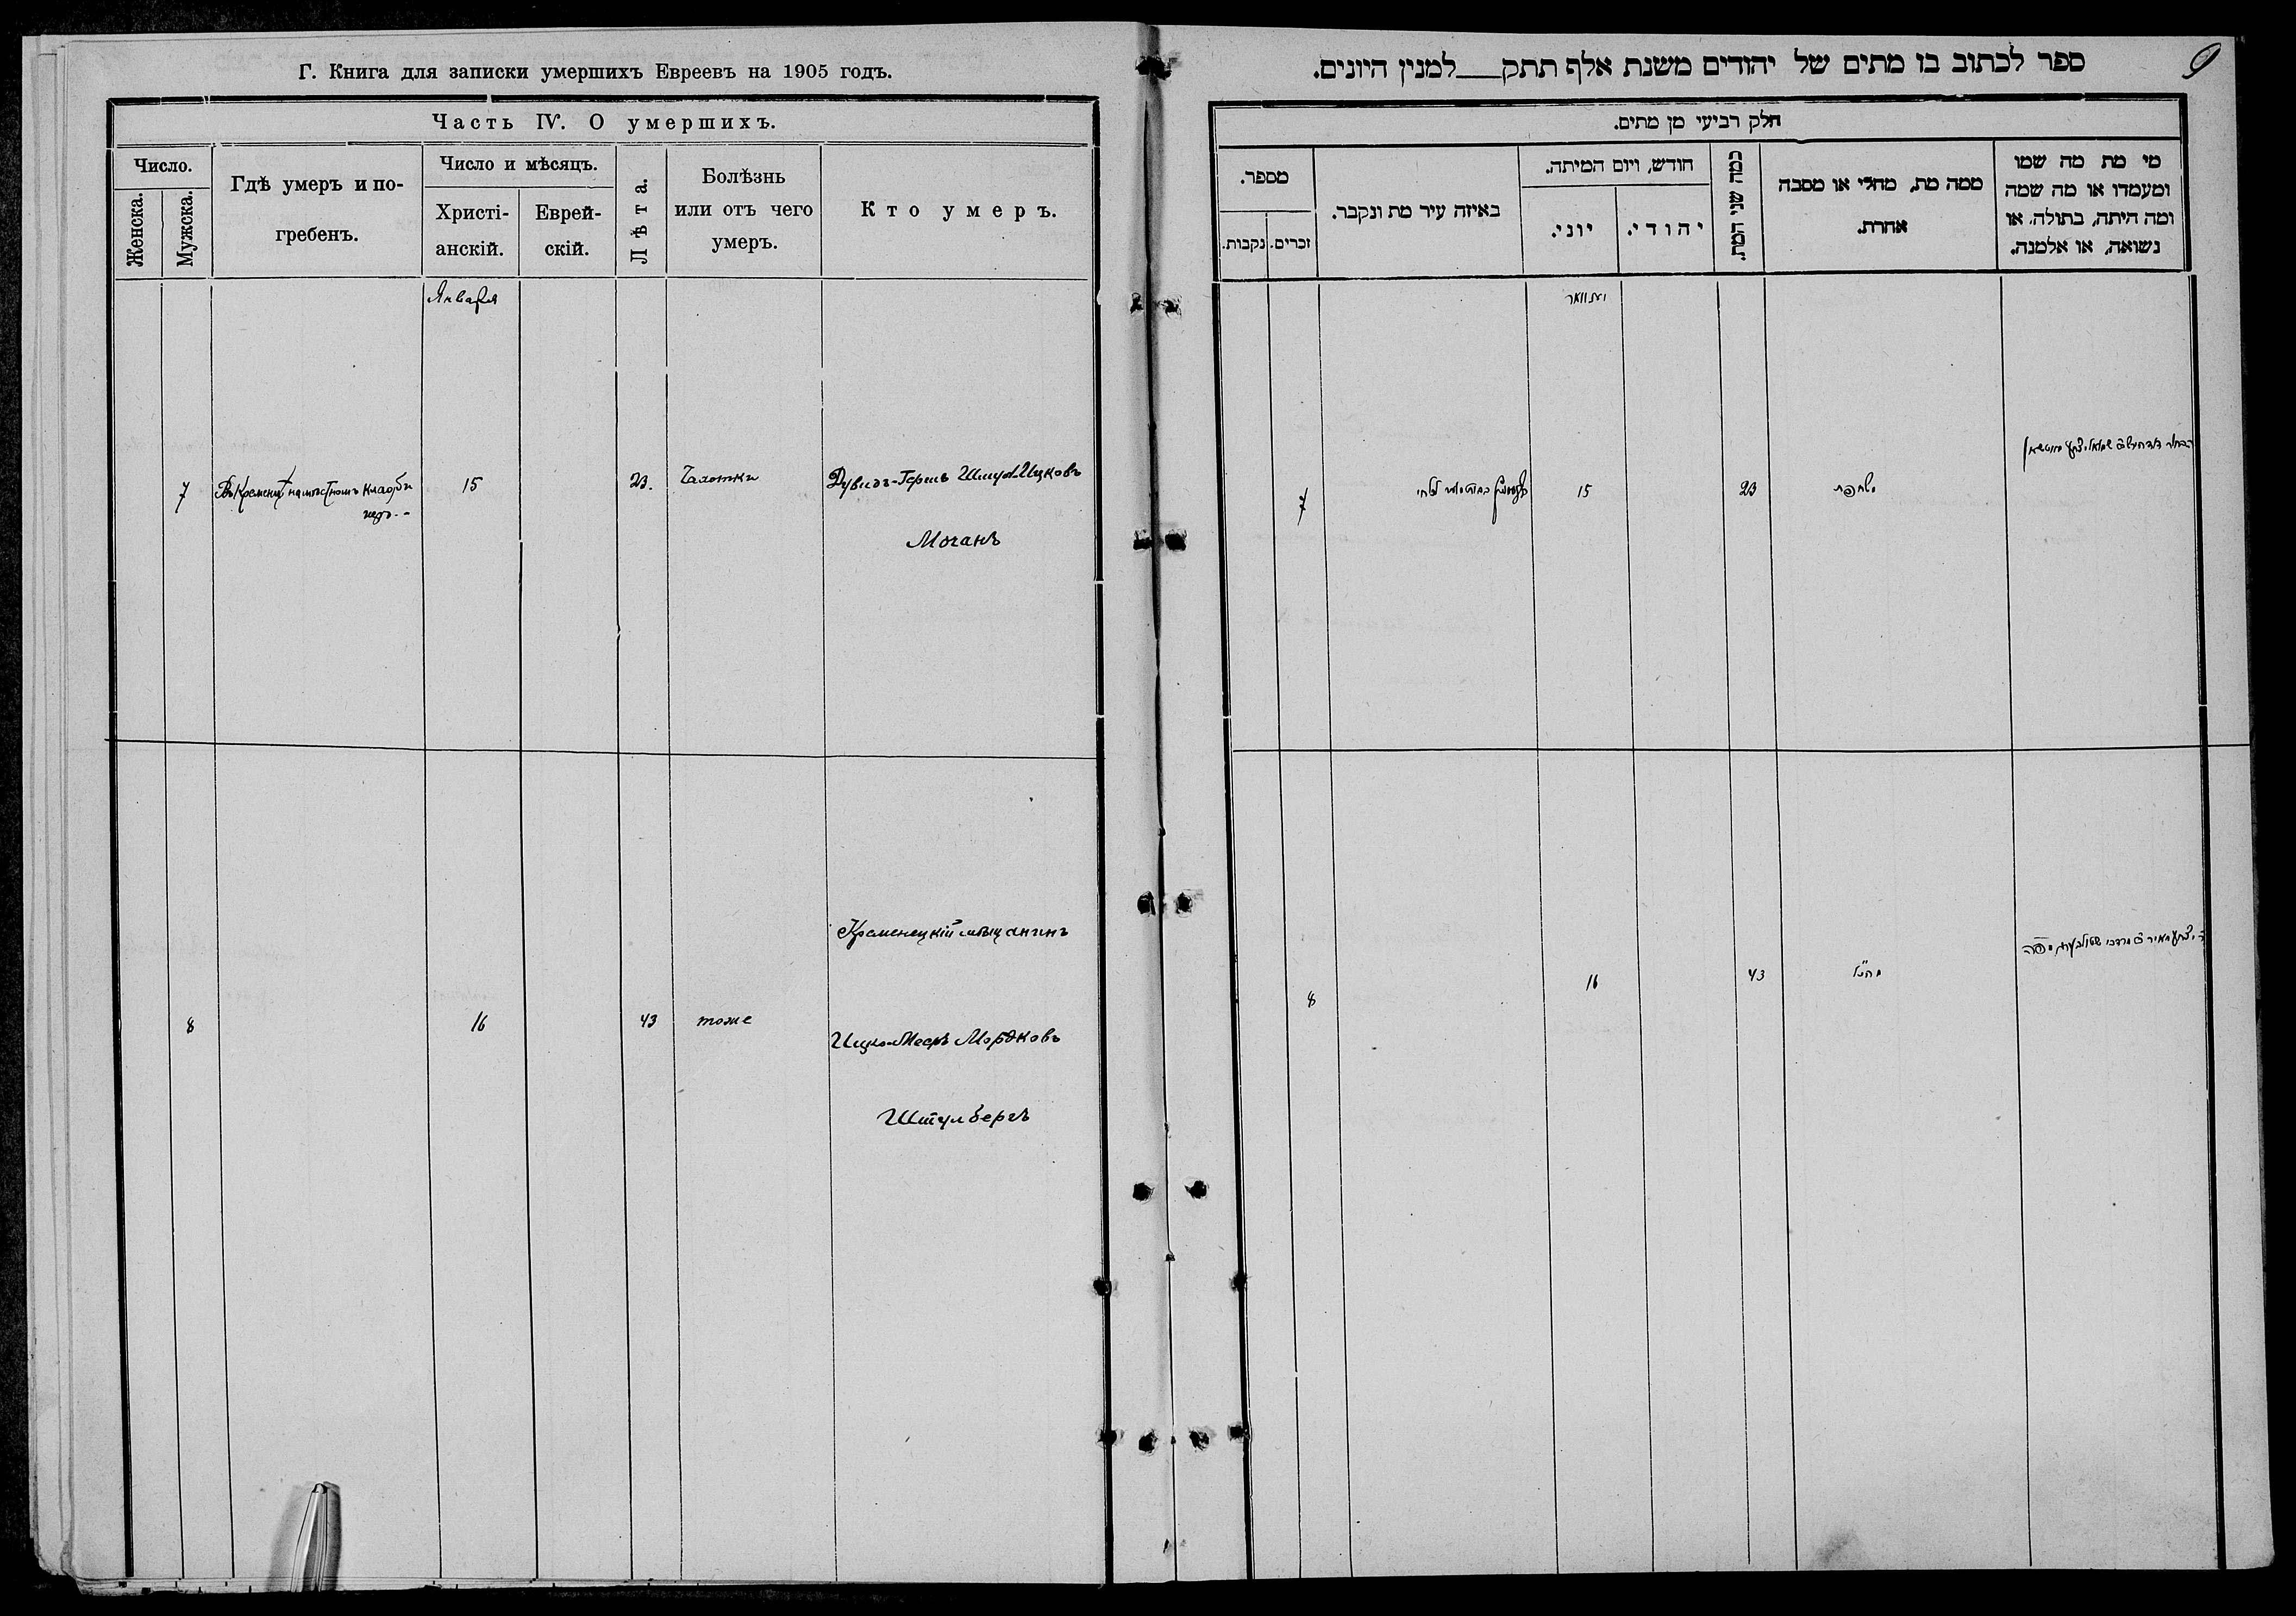 Г. Книга для записки умершихъ Евреевъ на 1905 годъ.
Часть IV. О умершихъ.
Число.
Женска.
Мужска.
Гдѣ умеръ и по-
гребенъ.
Число и мѣсяцъ.
Христі-
анскій.
Еврей-
скій.
Лѣта.
Болѣзнь
или отъ чего
умеръ.
Кто умеръ.
Января
7
15
23.
Чахотки
Дувидъ-Гершъ Шмул-Ицковъ
Мочанъ
Кременецкій мѣщанинъ
8
16
43
тоже
Ицко-Мееръ Мордковъ
Штулбергъ
ספר לכתוב בו מתים של יהודים משנת אלף תתק___למנין היונים.
9
חלק רביעי מן מתים.
מי מת מה שמו
ומעמדו או מה שמה
ומה היתה, בתולה, או
נשואה, או אלמנה.
ממה מת, מחלי או מסבה
אחרת.
כמה שני המת.
חודש, ויום המיתה.
יהודי.
יוני.
באיזה עיר מת ונקבר.
מספר.
זכרים.
נקבות.
23
15
7
43
16
8